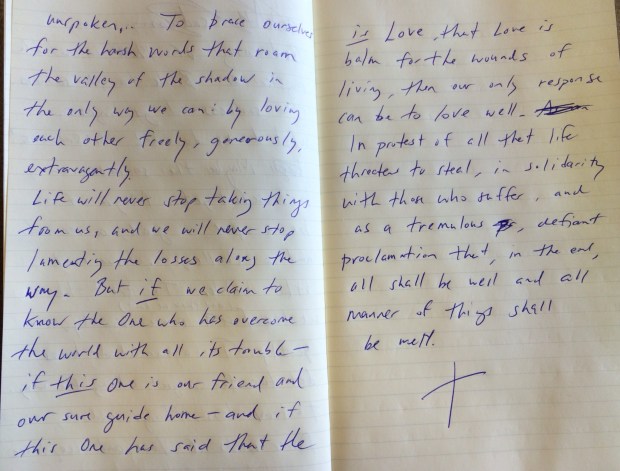 unspoken... To brace ourselves
for the harsh words that roam
the valley of the shadow in
the only way we can: by loving
each other freely, generously,
extravagantly
Life will never stop taking things
from us, and we will never stop
lamenting the losses along the
way. But if we claim to
know the One who has overcome
the world with all its trouble—
if this One is our friend and
our sure guide home — and if
this One has said that He
is Love, that Love is
balm for the wounds of
living, then our only response
can be to love well.
In protest of all that life
threatens to steal, in solidarity
with those who suffer, and
as a tremulous, defiant
proclamation that, in the end,
all shall be well and all
manner of things shall
be well.